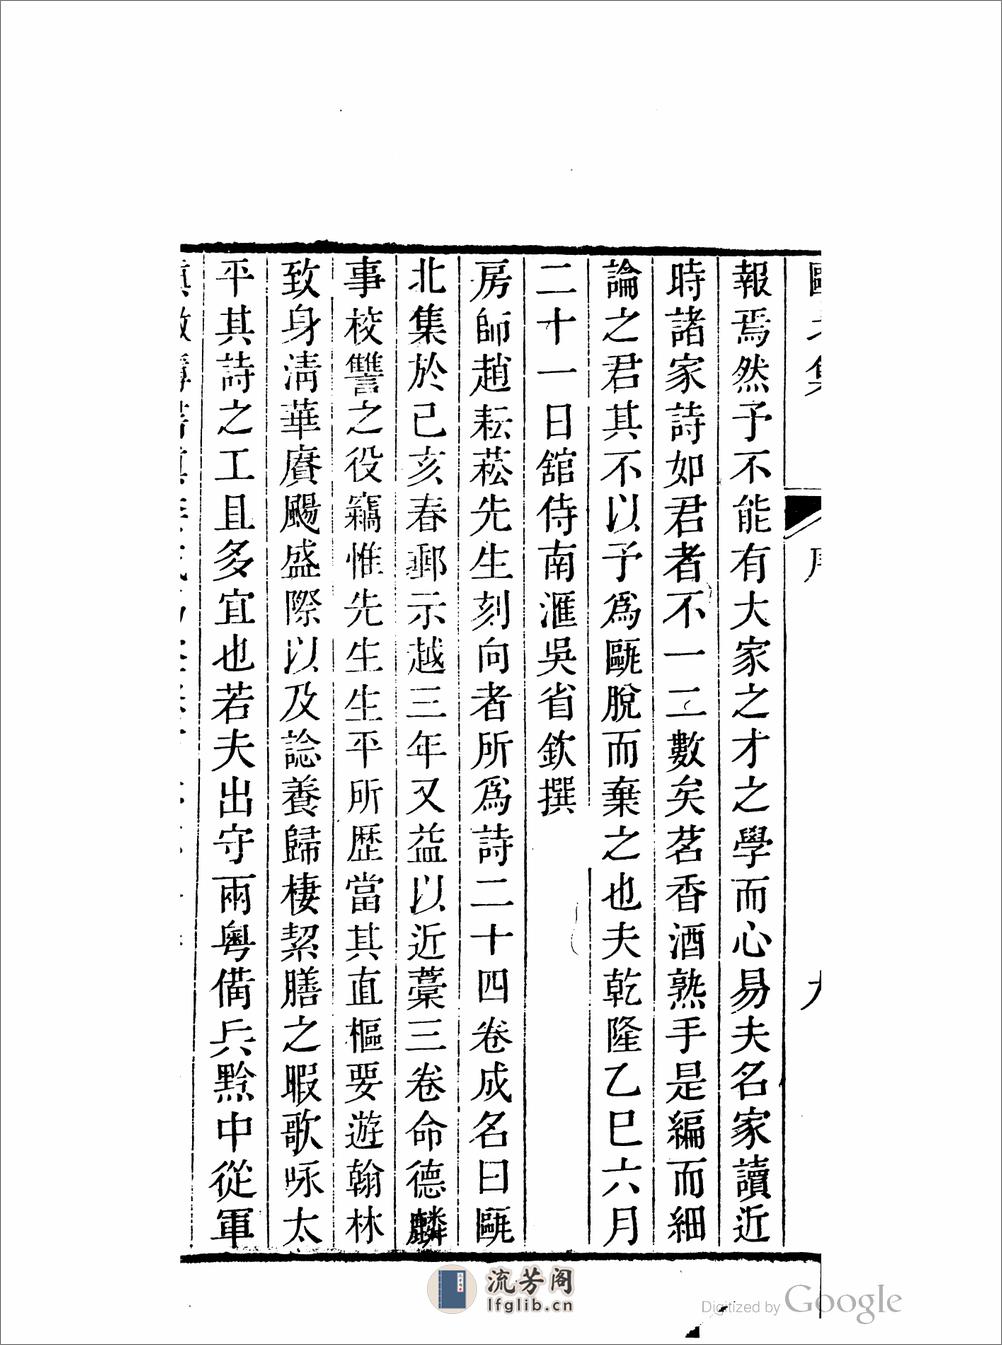 報焉然予不能有大家之才之學而心易夫名家讀近
時諸家詩如君者不一二數矣茗香酒熟手是編而細
論之君其不以予爲甌脫而棄之也夫乾隆乙巳六月
二十一日舘侍南滙吳省欽撰
房師趙耘菘先生刻向者所爲詩二十四卷成名曰甌
北集於己亥春郵示越三年又益以近藁三卷命德麟
事校讐之役竊惟先生生平所歷當其直樞要遊翰林
致身清華賡颺盛際以及諗養歸棲絜膳之暇歌咏太
平其詩之工且多宜也若夫出守兩粵備兵黔中從軍
流芳阁
lfglib.cn
Digitized by Google